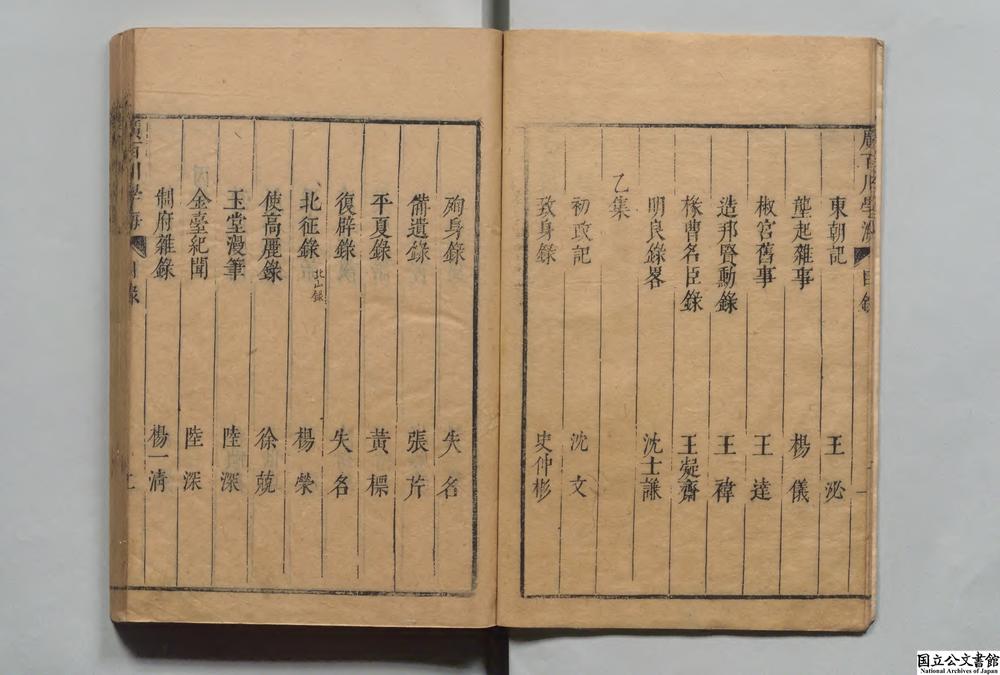 廣百川學海 目錄 一
東朝記 王泌
壟起雜事 楊儀
椒宮舊事 王達
造邦賢勳錄 王禕
掾曹名臣錄 王凝齋
明良錄畧 沈士謙
乙集
初政記 沈文
致身錄 史仲彬
殉身錄 失名
備遺錄 張芹
平夏錄 黃標
復辟錄 失名
北征錄 北山錄 楊榮
使高麗錄 徐兢
玉堂漫筆 陸深
金臺紀聞 陸深
制府雜錄 楊一清
廣百川學海 目錄
国立公文書館
National Archives of Japan